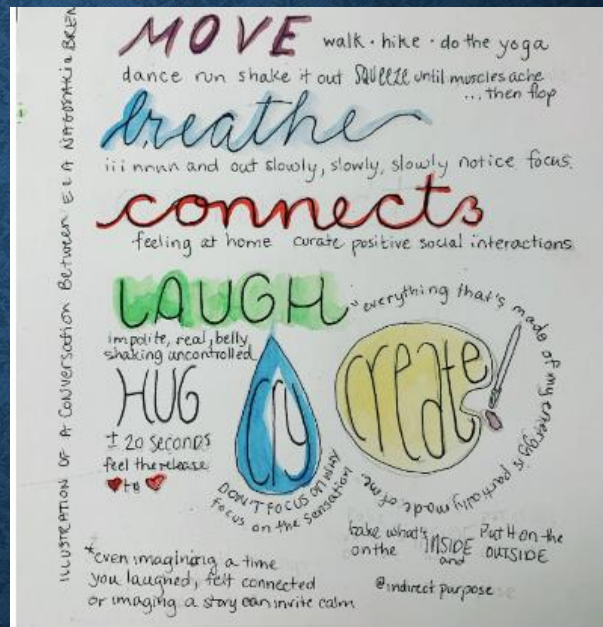 ILLUSTRATION OF A CONVERSATION BETWEEN E & A NAGOSAKI & BREN
MOVE walk · hike · do the yoga
dance run shake it out SQUEEZE until muscles ache
...then flop
breathe
iii nnnn and out slowly, slowly, slowly notice focus.
connects
feeling at home curate positive social interactions
LAUGH
impolite, real, belly
shaking uncontrolled
HUG
± 20 seconds
feel the release
to
CRY
DON'T FOCUS ON WHY
focus on the sensation
create
"everything that's made of my energy is partially made of me.
take what's on the INSIDE and Put it on the OUTSIDE
*even imagining a time
you laughed, felt connected
or imaging a story can invite calm
@indirect purpose